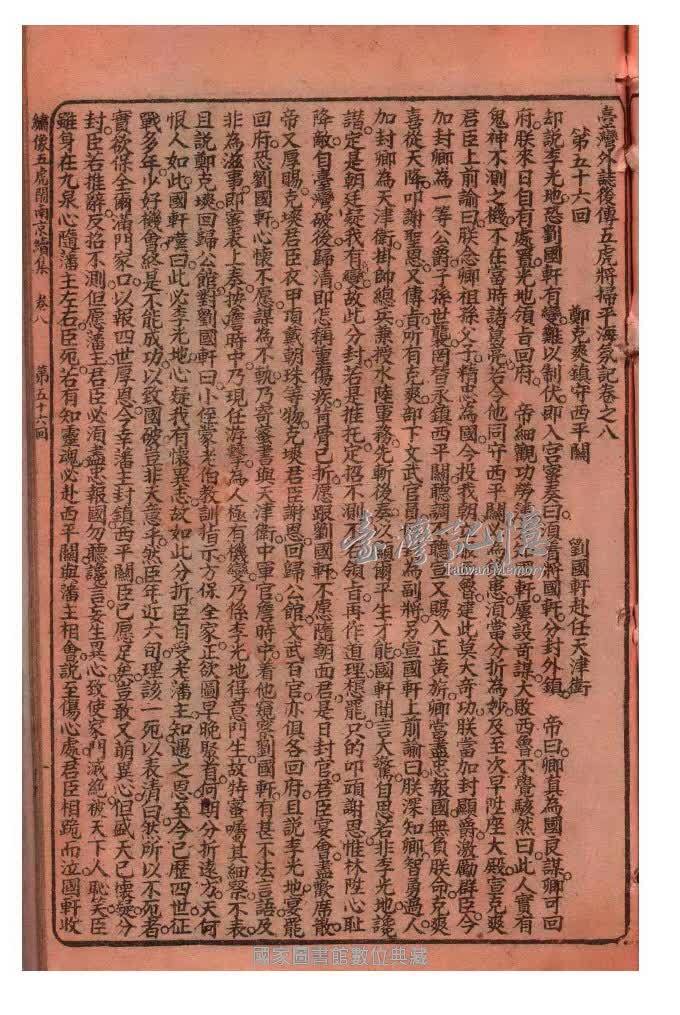 臺灣外誌後傳五虎將掃平海氛記卷之八
第五十六回　鄭克塽鎮守西平關　劉國軒赴任天津衛
却說李光地恐劉國軒有變難以制伏即入宮密奏曰須着將國軒分封外鎮　帝曰卿真為國良謀卿可回
府朕來日自有處置光地領旨回府　帝細觀功勞簿
軒屢設奇謀大敗西魯不覺駭然曰此人實有
鬼神不測之機不在當時諸葛亮若令他同守西平關以為
患須當分折為妙及至次早陞座大殿宣克塽
君臣上前諭曰朕念卿祖孫父子精忠為國今投我朝
魯建此莫大奇功朕當加封顯爵激勵群臣今
加封卿為一等公爵子孫世襲罔替永鎮西平關聽調不聽宣又賜入正黃旂卿當盡忠報國無負朕命克塽
喜從天降叩謝聖恩又傳旨所有克塽部下文武官員
為副將另宣國軒上前諭曰朕深知卿智勇過人
加封卿為天津衛掛帥總兵兼授水陸軍務先斬後奏以顯爾平生才能國軒聞言大驚自思若非李光地讒
譖定是朝廷疑我有變故此分封若是推托定招不測不
領旨再作道理想罷只的叩頭謝恩惟林陞心耻
降敵自臺灣破後歸清即怎稱重傷疾背骨已折愿跟劉國軒不愿隨朝面君是日封官君臣宴會盡歡席散
帝又厚賜克塽君臣衣甲頂戴朝珠等物克塽君臣謝恩回歸公館文武百官亦俱各回府且說李光地宴罷
回府恐劉國軒心懷不愿謀為不軌乃寄密書與天津衛中軍官詹時中着他窺察劉國軒有甚不法言語及
非為滋事即密表上奏按詹時中乃現任游擊為人極有機變乃係李光地得意門生故特密囑其細察不表
且說鄭克塽回歸公館對劉國軒曰小侄蒙老伯教訓指示方保全家正欲圖早晚聚首何期分折遠方天何
恨人如此國軒嘆曰此必李光地心疑我有懷異志故如此分折臣自受老藩主知遇之恩至今已歷四世征
戰多年少好機會終是不能成功以致國破豈非天意乎然臣年近六旬理該一死以表清白然所以不死者
實欲保全爾滿門家口以報四世厚恩今幸藩主封鎮西平關臣已愿足矣豈敢又萌異心但感天已懷疑分
封臣若推辭反招不測但愿藩主君臣必須盡忠報國勿聽讒言妄生異心致使家門滅絕被天下人恥笑臣
雖身在九泉心隨藩主左右臣死若有知靈魂必赴西平關與藩主相會說至傷心處君臣相跪而泣國軒收
繡像五虎鬧南京續集　卷八　第五十六回
臺灣記憶
Taiwan Memory
國家圖書館數位典藏